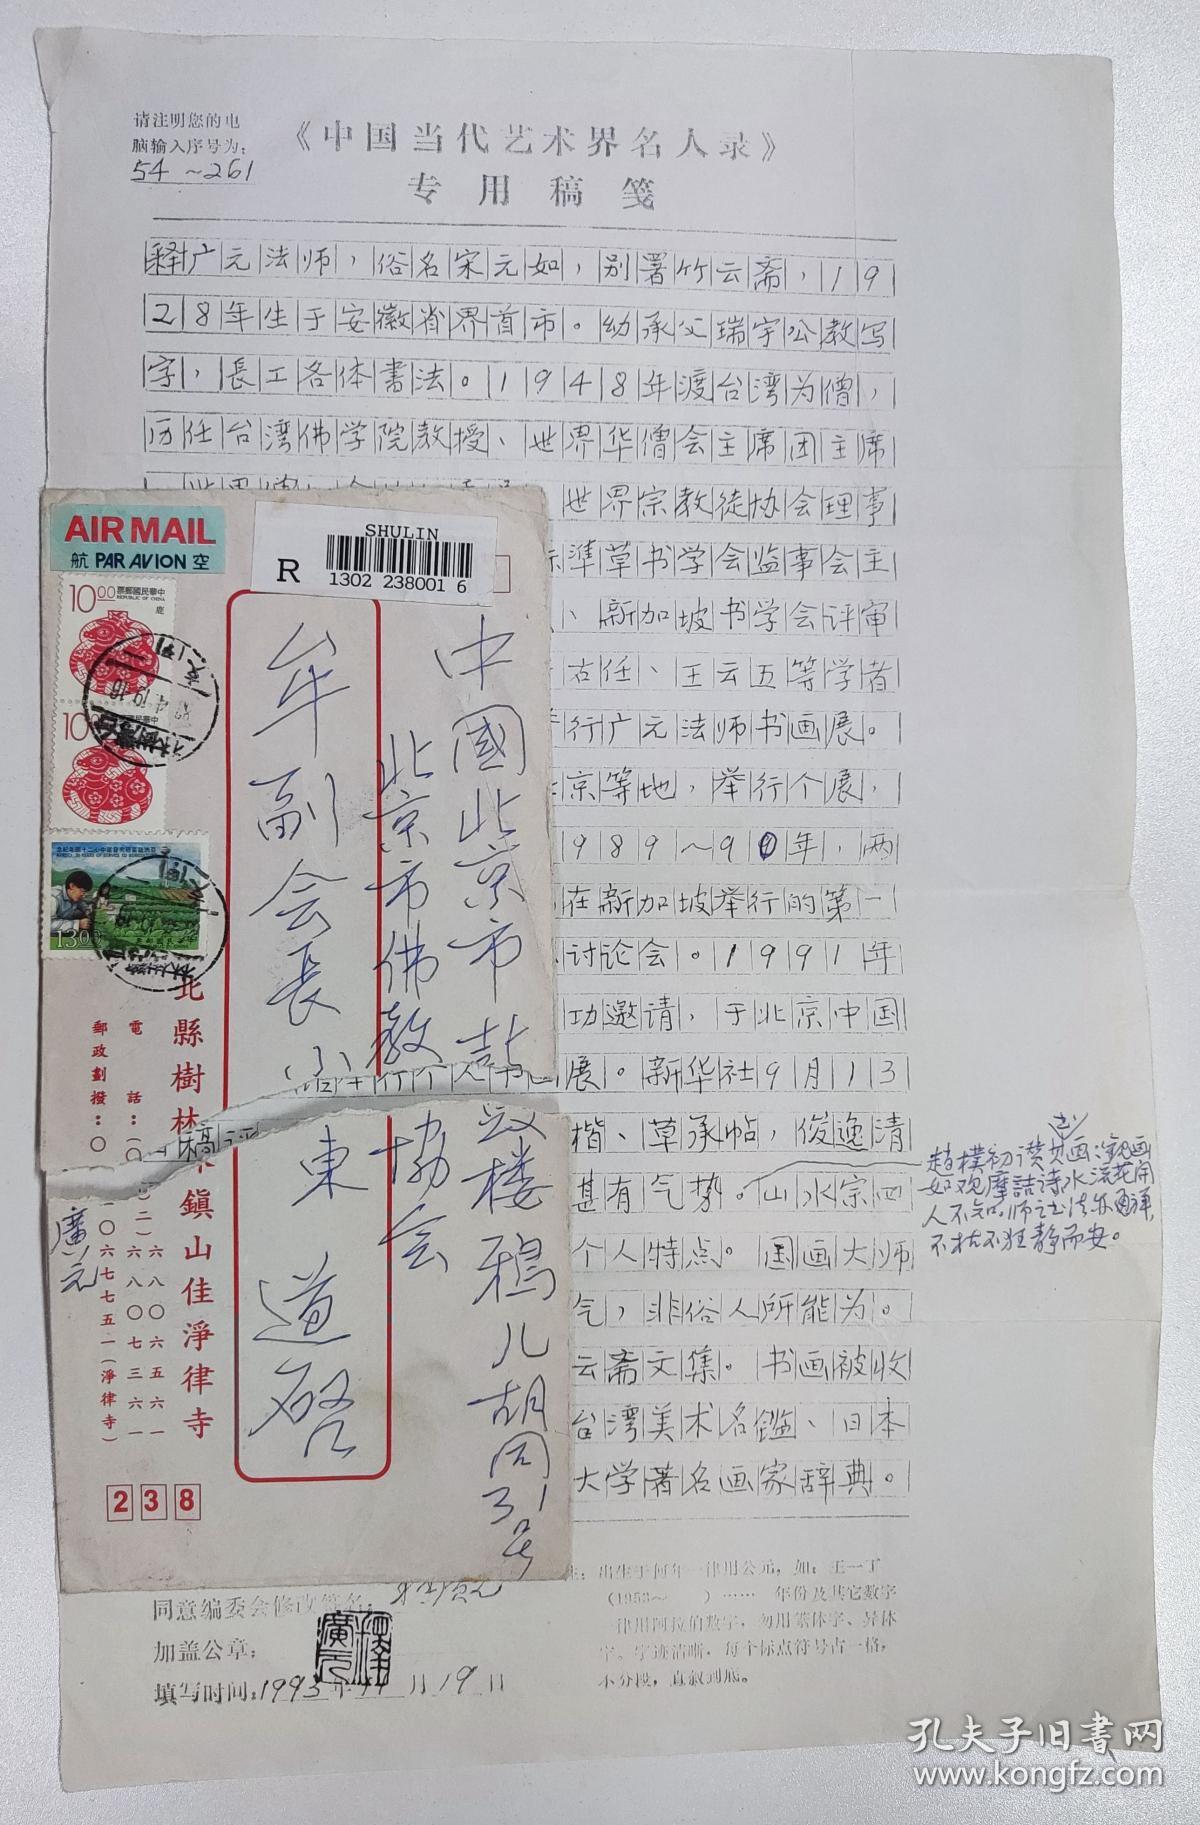 请注明您的电
脑输入序号为:
54～261
《中国当代艺术界名人录》
专用稿笺
释广元法师，俗名宋元如，别署竹云斋，19
28年生于安徽省界首市。幼承父瑞宇公教写
字，長工各体書法。1948年渡台湾为僧，
历任台湾佛学院教授、世界华僧会主席团主席
世界宗教徒协会理事
準草书学会监事会主
、新加坡书学会评审
右任、王云五等学者
行广元法师书画展。
京等地，举行个展，
989～90年，两
在新加坡举行的第一
讨论会。1991年
功邀请，于北京中国
展。新华社9月13
楷、草承帖，俊逸清
甚有气势。山水宗四
个人特点。国画大师
气，非俗人所能为。
云斋文集。书画被收
台湾美术名鑑、日本
大学著名画家辞典。
趙樸初讚其画：觀画
如观摩詰诗水流花開
不枯不狂静而安。
AIR MAIL
航 PAR AVION 空
SHULIN
R
1302 238001 6
10.00
票郵國民華中
REPUBLIC OF CHINA
鹿
10.00
13.00
中國北京市鼓
楼鴉儿胡同31号
北京市佛教
協会
牟副会長小東 道啓
北縣樹林鎮山佳淨律寺
電話：
六八〇六五六一
六八〇七三六一
郵政劃撥：〇
〇六七七五一（淨律寺）
廣元
238
出生于何年一律用公元，如：王一丁
（1953～ ）…… 年份及其它数字
一律用阿拉伯数字，勿用繁体字、异体
字。字迹清晰，每个标点符号占一格，
不分段，直叙到底。
同意编委会修改签名：
加盖公章：
填写时间：1993年 月19日
孔夫子旧书网
www.kongfz.com